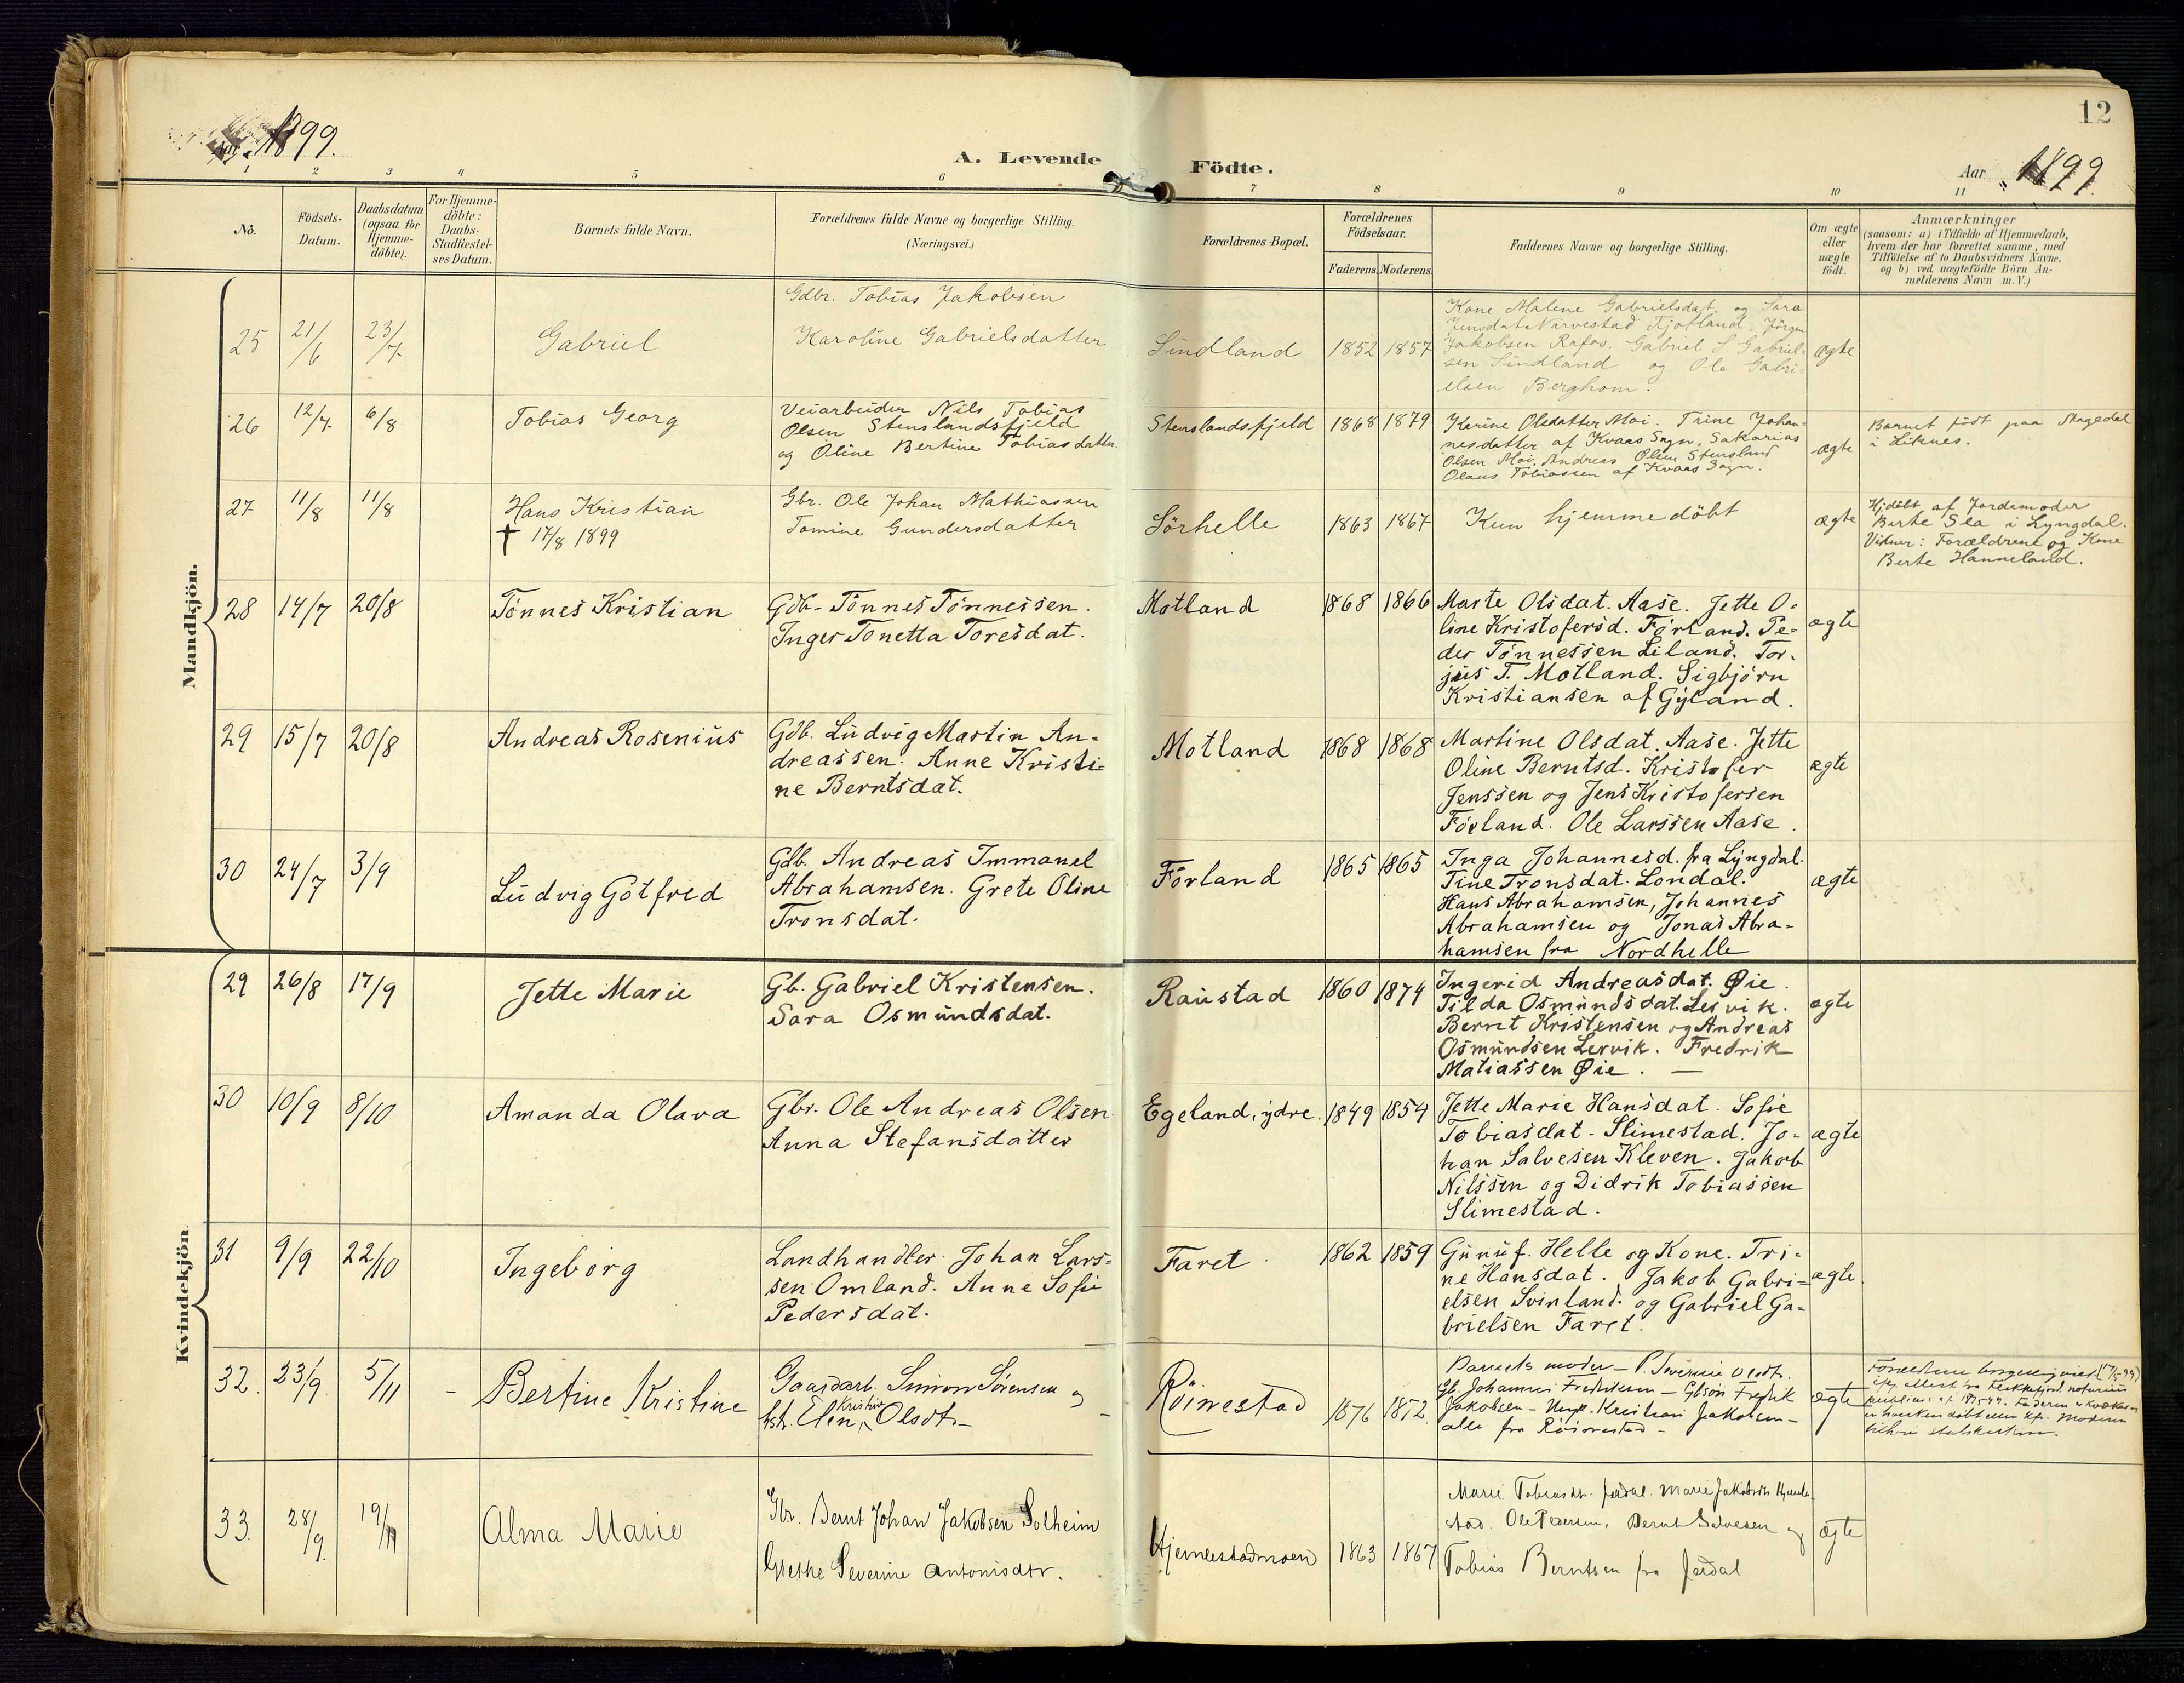 12
Aar 1899.
A. Levende Födte.
Aar 1899.
1 2 3 4 5 6 7 8 9 10 11
No. Födsels-Datum. Daabsdatum (ogsaa for Hjemme-döbte). For Hjemme-döbte: Daabs-Stadfæstel-ses Datum. Barnets fulde Navn. Forældrenes fulde Navne og borgerlige Stilling. (Næringsvei.) Forældrenes Bopæl. Forældrenes Födselsaar. Faderens. Moderens. Faddernes Navne og borgerlige Stilling. Om ægte eller uægte födt. Anmærkninger (saasom: a) i Tilfælde af Hjemmedaab, hvem der har forrettet samme, med Tilföielse af to Daabsvidners Navne. og b) ved uægtefödte Börn An-melderens Navn m. V.)
Mandkjön.
25 21/6 23/7 Gabriel
Gdbr. Tobias Jakobsen
Karoline Gabrielsdatter
Sindland 1852 1857
Kone Malene Gabrielsdat. og Sara
Jensdat. Narvestad Fjotland, Jörgen
Jakobsen Rafos, Gabriel S. Gabriel-
sen Sindland og Ole Gabri-
elsen Berghom.
ægte
26 12/7 6/8 Tobias Georg
Veiarbeider Nils Tobias
Olsen Stenslandsfjeld
og Oline Bertine Tobiasdatter
Stenslandsfjeld 1868 1879
Karine Olsdatter Moi. Trine Johan-
nesdatter af Kvaas Sogn, Sakarias
Olsen Moi, Andreas Olsen Stensland
Olaus Tobiassen af Kvaas Sogn.
ægte
Barnet födt paa Stagedal
i Liknes.
27 11/8 11/8 Hans Kristian
† 17/8 1899
Gbr. Ole Johan Mathiassen
Tomine Gundersdatter
Sörhelle 1863 1867
Kun hjemmedöbt
ægte
Hjdöbt af Jordemoder
Berte Slea i Lyngdal.
Vidner: Forældrene og Kone
Berte Hanneland.
28 14/7 20/8 Tönnes Kristian
Gdb. Tönnes Tönnessen.
Inger Tonetta Toresdat.
Motland 1868 1866
Marte Olsdat. Aase. Jette O-
line Kristofersd. Förland. Pe-
der Tönnessen Liland. Tor-
jus T. Motland. Sigbjörn
Kristiansen af Gyland.
ægte
29 15/7 20/8 Andreas Rosenius
Gdb. Ludvig Martin An-
dreassen. Anne Kristi-
ne Berntsdat.
Motland 1868 1868
Martine Olsdat. Aase. Jette
Oline Berntsd. Kristofer
Jenssen og Jens Kristofersen
Förland. Ole Larssen Aase.
ægte
30 24/7 3/9 Ludvig Gotfred
Gdb. Andreas Immanuel
Abrahamsen. Grete Oline
Tronsdat.
Förland 1865 1865
Inga Johannesd. fra Lyngdal.
Tine Tronsdat. Londal.
Hans Abrahamsen, Johannes
Abrahamsen og Jonas Abra-
hamsen fra Nordhelle
ægte
Kvindekjön
29 26/8 17/9 Jette Marie
Gb. Gabriel Kristensen.
Sara Osmundsdat.
Raustad 1860 1874
Ingerid Andreasdat. Øie.
Tilda Osmundsdat. Lervik.
Bernt Kristensen og Andreas
Osmundsen Lervik. Fredrik
Matiassen Øie. —
ægte
30 10/9 8/10 Amanda Olava
Gbr. Ole Andreas Olsen
Anna Stefansdatter
Egeland, ydre. 1849 1854
Jette Marie Hansdat. Sofie
Tobiasdat. Slimestad. Jo-
han Salvesen Kleven. Jakob
Nilssen og Didrik Tobiassen
Slimestad.
ægte
31 9/9 22/10 Ingeborg
Landhandler Johan Lars-
sen Omland. Anne Sofie
Pedersdat.
Faret 1862 1859
Gunuf. Helle og Kone. Tri-
ne Hansdat. Jakob Gabri-
elsen Svinland. og Gabriel Ga-
brielsen Faret.
ægte
32. 23/9. 5/11 - Bertine Kristine
Gaardarb. Simon Sörensen og
hst. Elen Kristine Olsdt.
Röinestad 1876 1872
Barnets moder — P. Severine Olsdt.
Gb. Johannes Fredriksen — Gbsön Fredrik
Jakobsen — Ungk. Kristian Jakobsen —
alle fra Röinestad —
ægte
Forældrene borgerlig viet (17/5 99)
ifg. attest fra Flekkefjord notarius
33. 28/9. 19/11 Alma Marie
Gbr. Bernt Johan Jakobsen Solheim
Grethe Severine Antonisdtr.
Hjemlestadmoen 1863 1867
Marie Tobiasdtr. Jerdal. Marie Jakobsdtr. Hjemle-
stad. Ole Pedersen, Bernt Salvesen og
Tobias Berntsen fra Jerdal
ægte